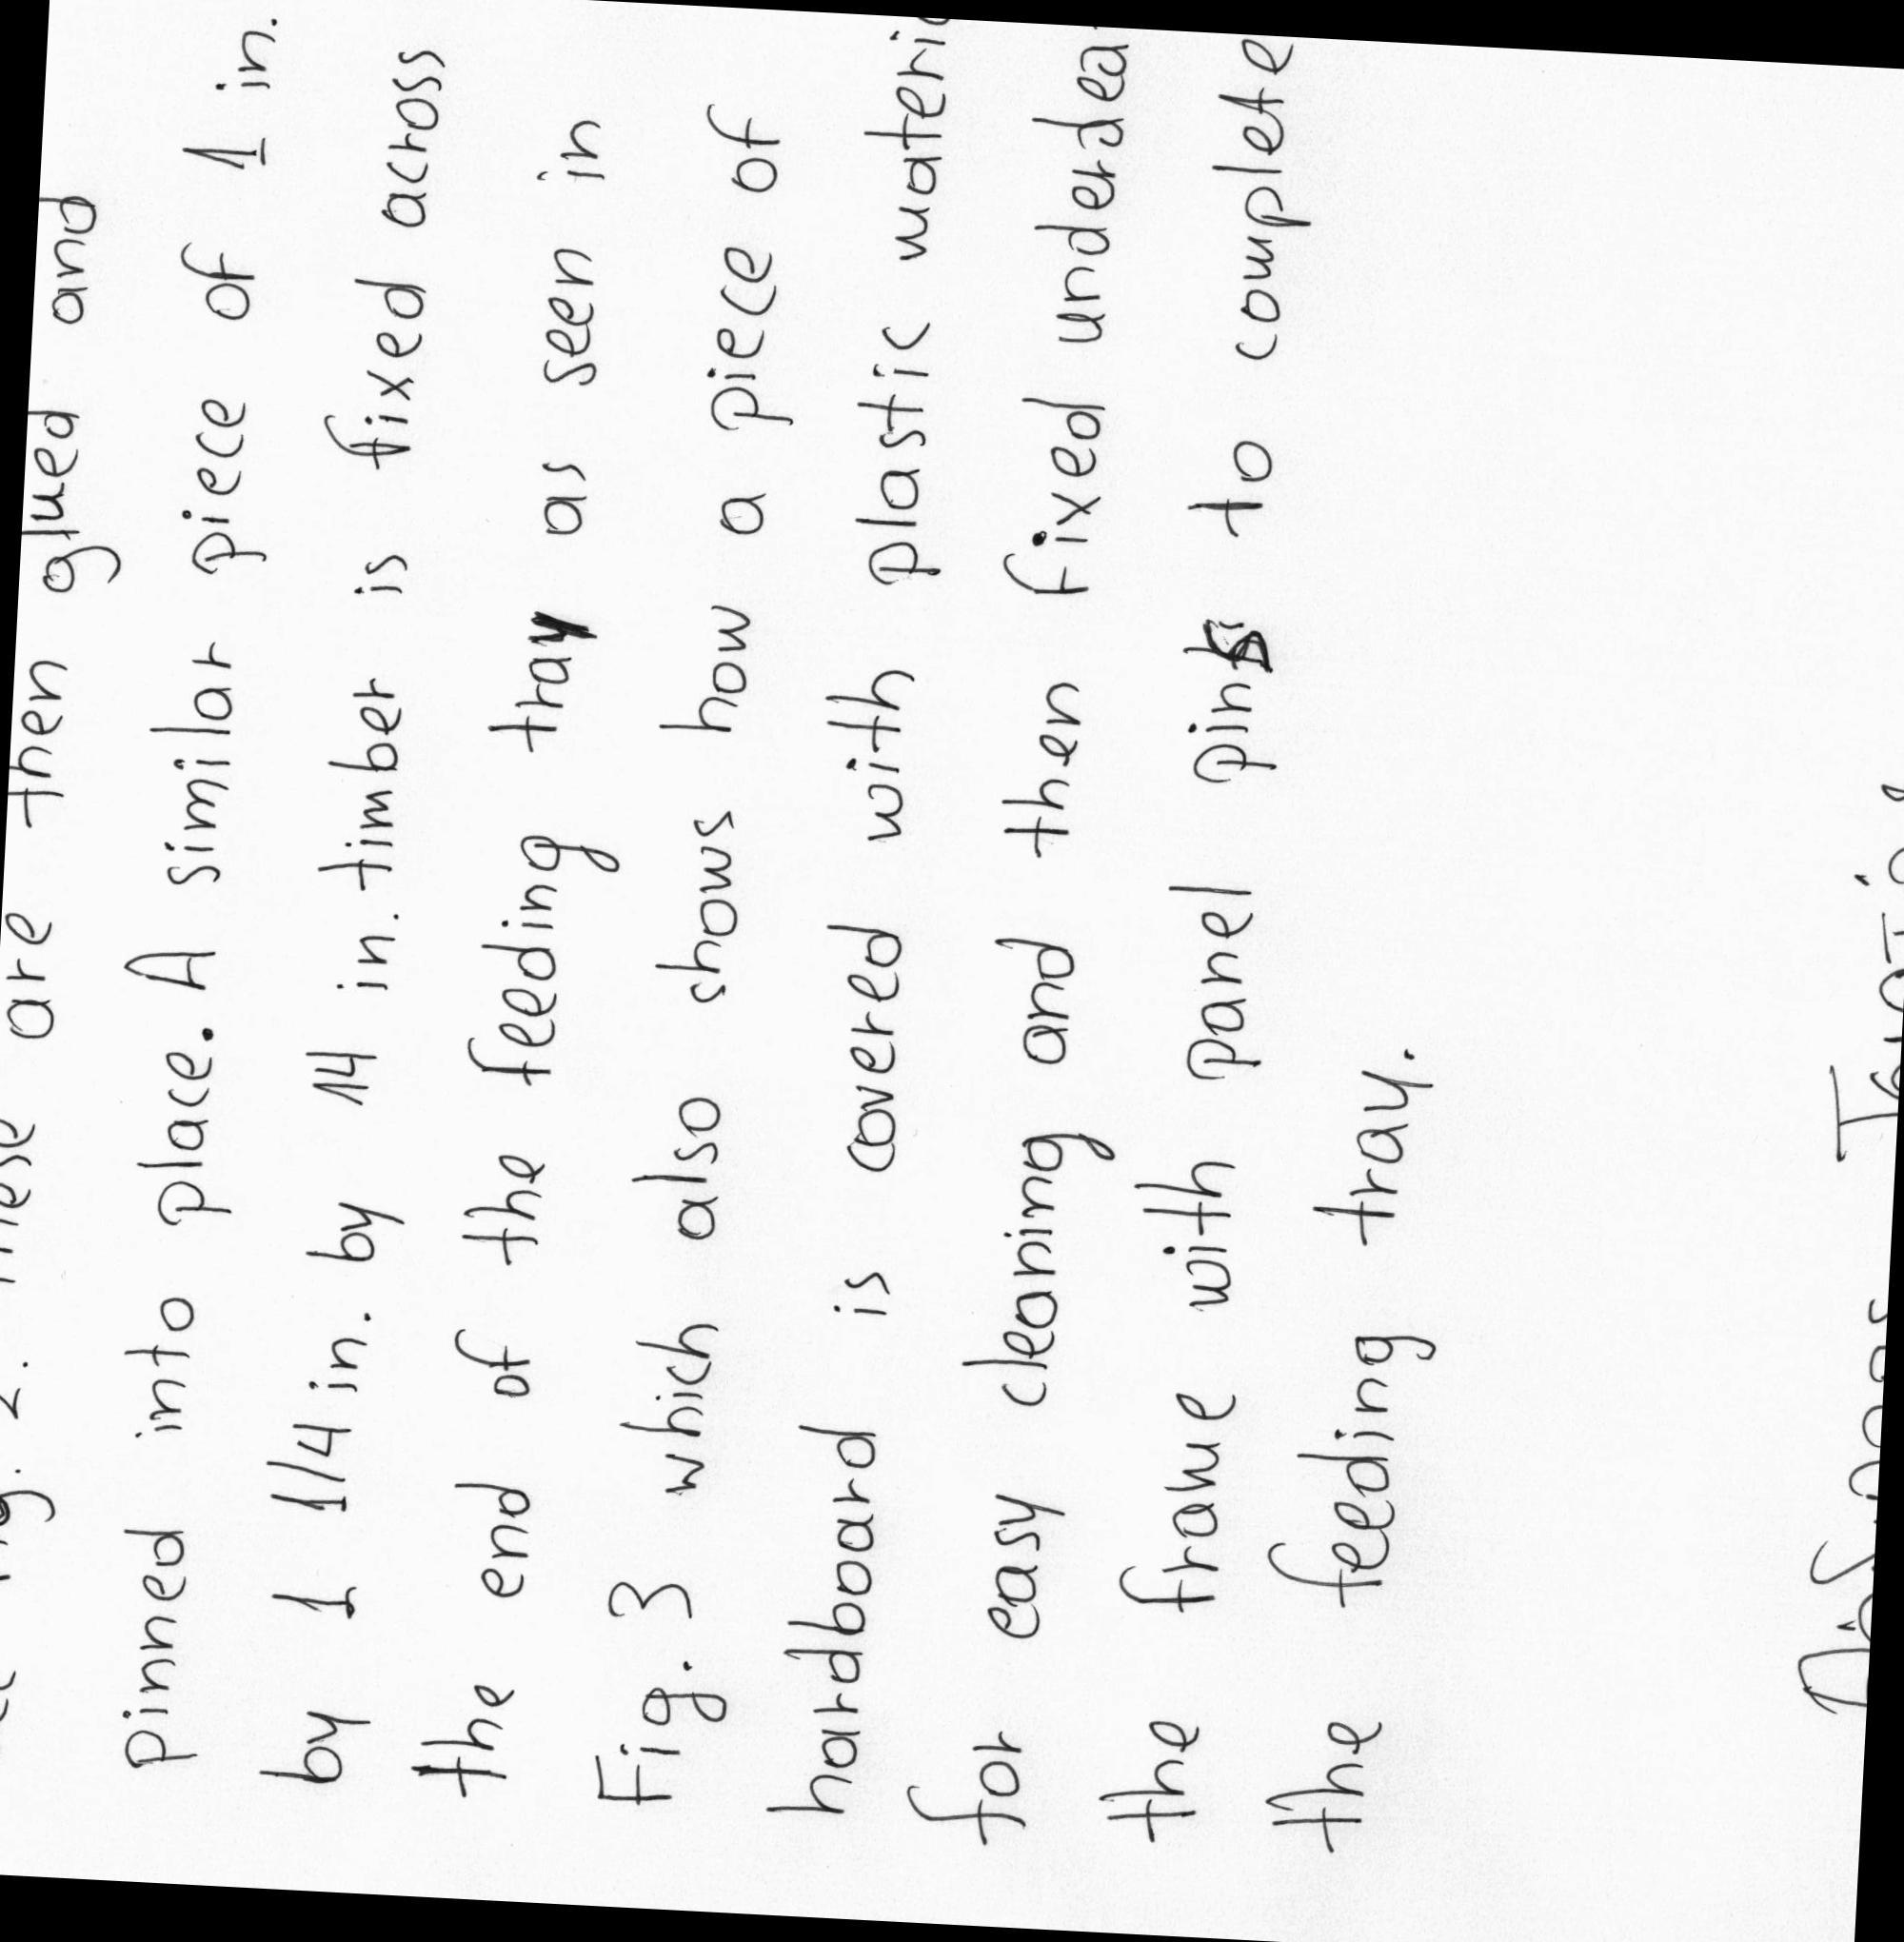 Fig. 2. These are then glued and
pinned into place. A similar piece of 1 in.
by 1 1/4 in. by 14 in. timber is fixed across
the end of the feeding tray as seen in
Fig. 3 which also shows how a piece of
hardboard is covered with plastic
for easy cleaning and then fixed
the frame with panel pins to complete
the feeding tray.